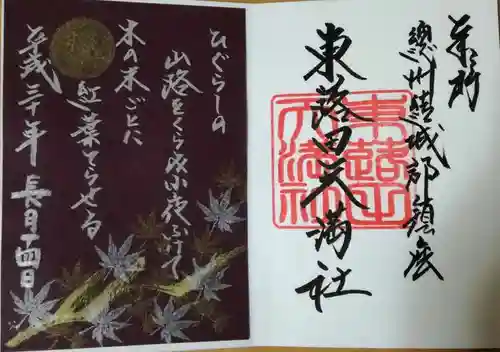 奉拝
總州結城郡鎮座
東蕗田天満社
東蕗田
天満社
ひぐらしの
山路をくらみ小夜ふけて
木の末ごとに
紅葉てらせる
平成三十年 長月十四日